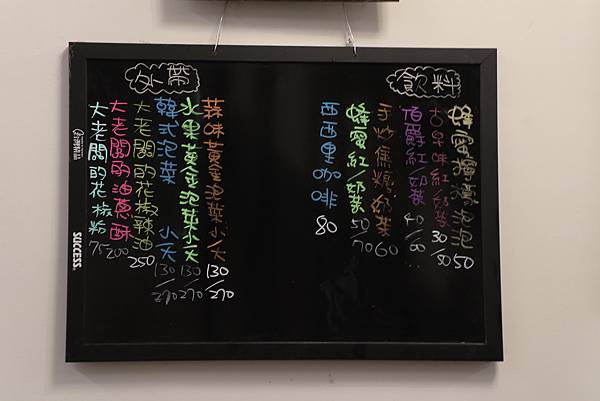 飲料
蜂蜜檸檬泡泡 50
古早味紅/奶茶 30/50
伯爵紅/奶茶 40/60
手炒焦糖奶茶 60
蜂蜜紅/奶茶 50/70
西西里咖啡 80
外帶
蒜味黃金泡菜小/大 130/270
水果黃金泡菜小/大 130/270
韓式泡菜 小/大 130/270
大老闆的花椒辣油 250
大老闆的油蔥酥 200
大老闆的花椒粉 75
SUCCESS